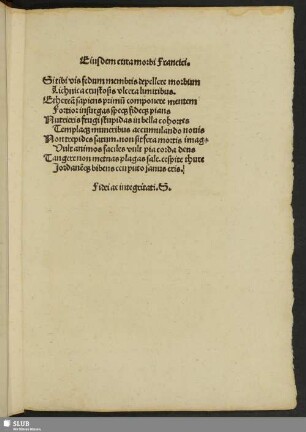 Eiusdem cura morbi Francici.
Si tibi vis fedum membris depellere morbum
Lichnica crustosis vlcera luminibus.
Etheream sapiens primum componere mentem
Fortior insurgas speque fideque pians
Nutrieris frugi stupidas in bella cohortes
Templaque muneribus accumulando nouis
Non trepides saturn. non sit fera mortis imago
Vult animos faciles vult pia corda deus
Tangere non metuas plagas sale. cespite thure
Iordanemque bibens ceu puto sanus eris.
Fidei ac integritati. S.
SLUB